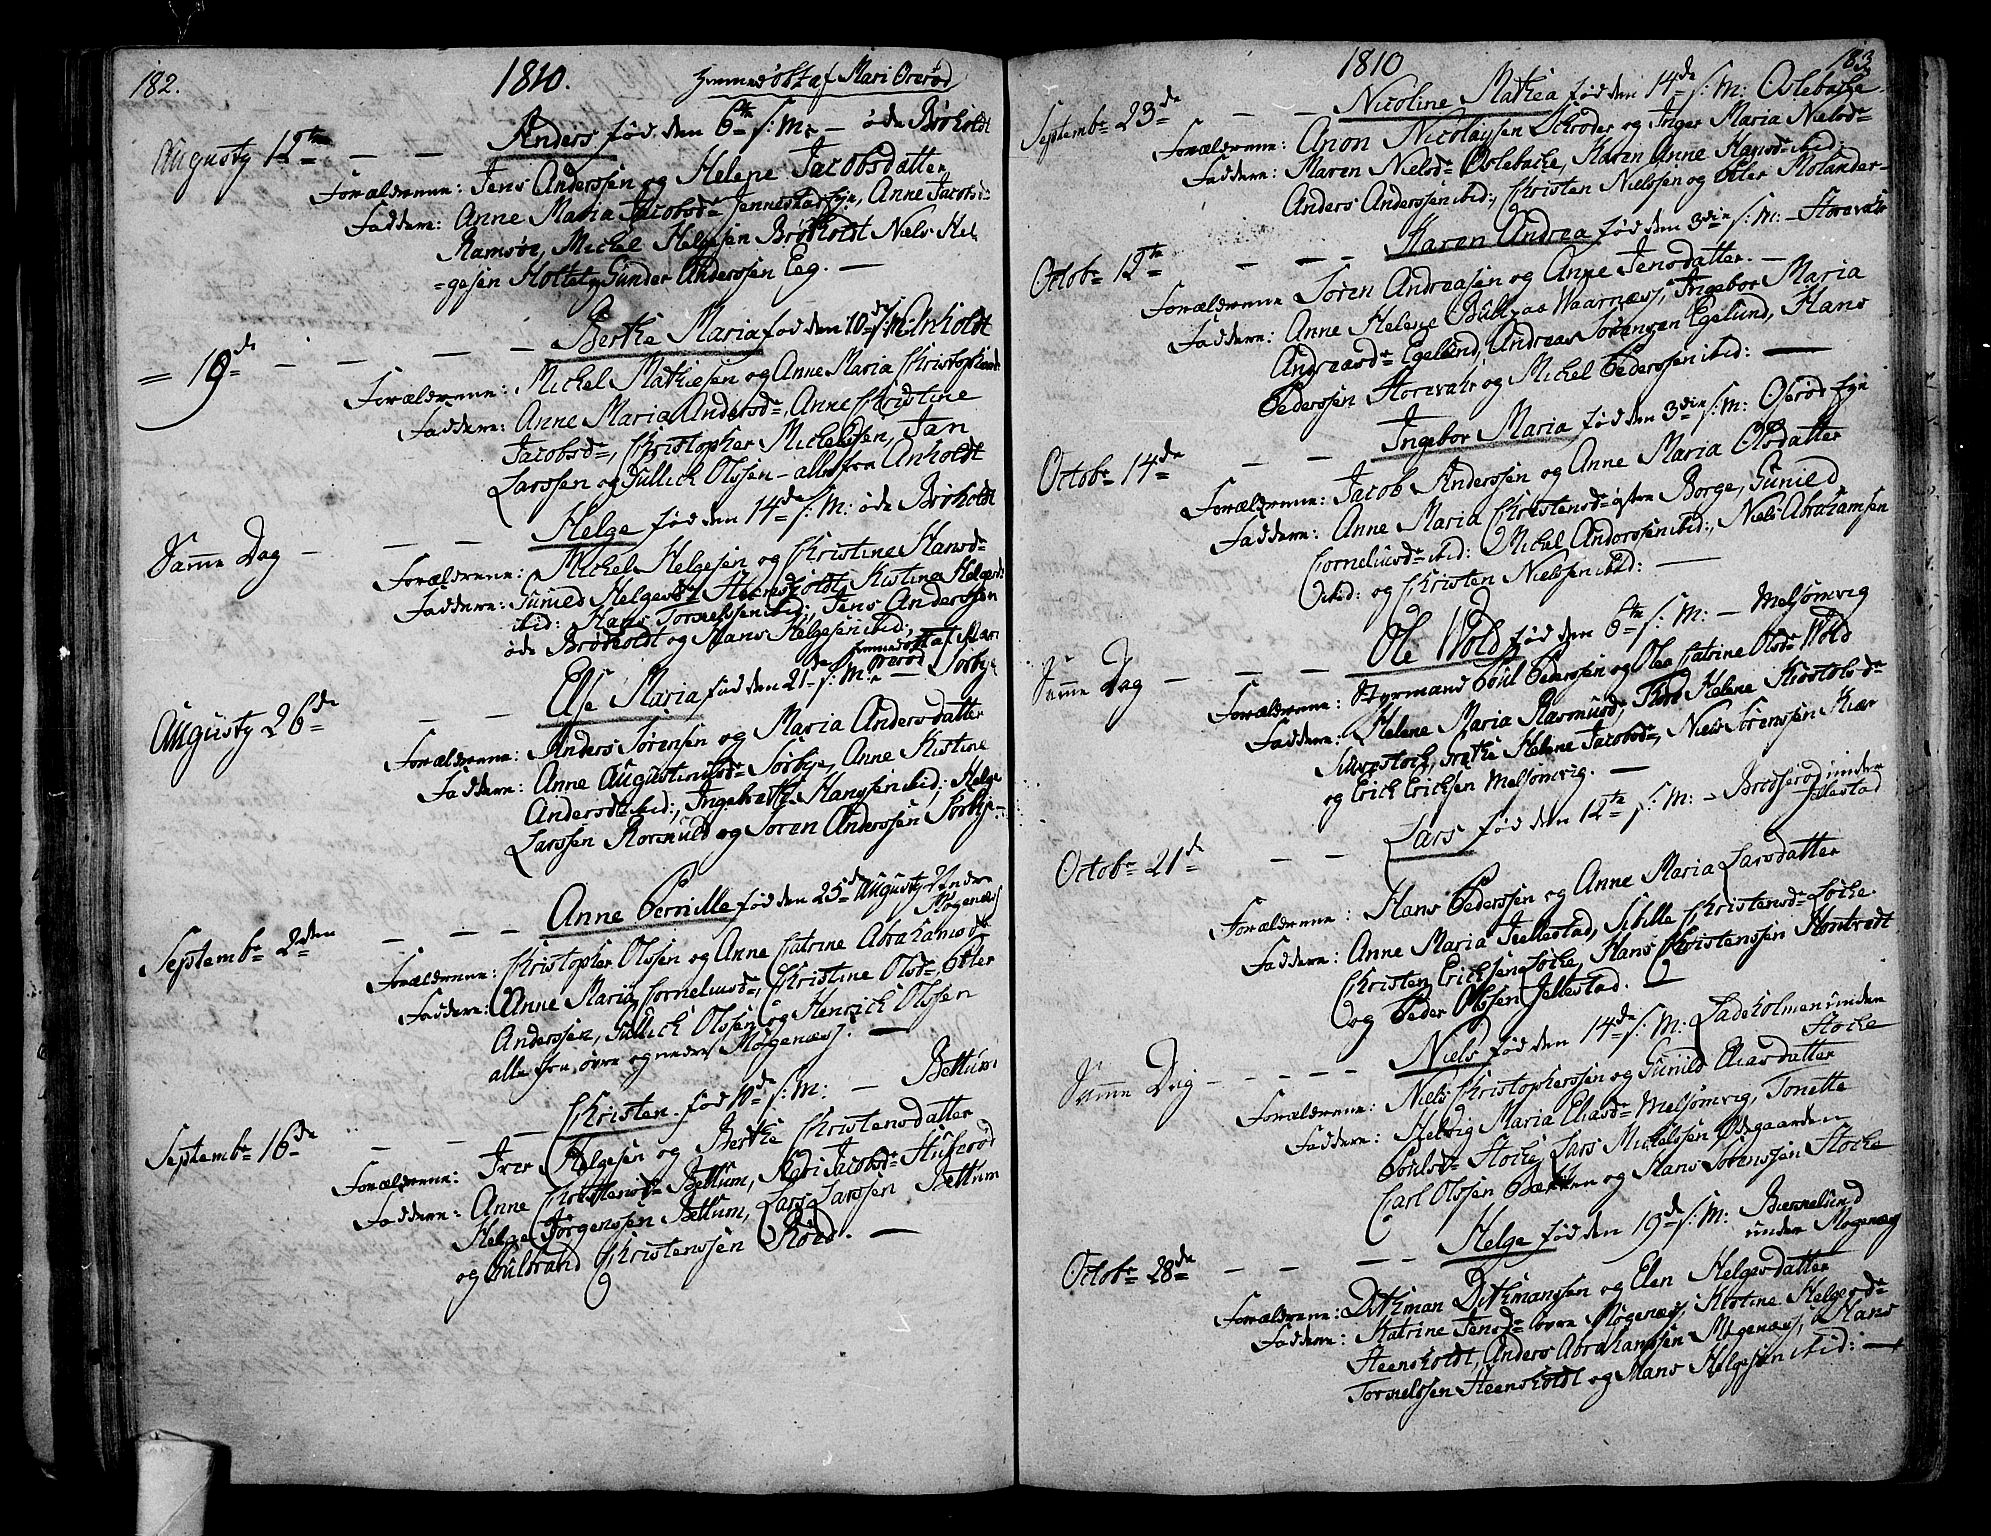 182.
1810.
hiemmedøbt af Mari Orerød
Augusty 12te — — Anders fød den 6te s: M: — øde Brøholdt
Forældrene: Jens Anderssen og Helene Jacobsdatter
Faddere: Anne Maria Jacobsd. Jenneskarhyn, Anne Jacobsd.
Ramsøe, Michel Helgesen Brøholdt Niels Hel
=gesen Holtet og Gunder Anderssen Eeg. —
= 19de — — — Berthe Maria fød den 10de s: M: Anholdt
Forældrene: Michel Mathiesen og Anne Maria Christophersd.
Faddere: Anne Maria Andersd., Anne Christine
Jacobsd., Christopher Michelssen, Jan
Larssen og Gullich Olssen - alle fra Anholdt
Samme Dag — — — Helge fød den 14de s: M: øde Brøholdt
Forældrene: Michel Helgesen og Christine Hansd.
Faddere: Gunild Helgesd. Heensholdt, Kistine Helgesd.
ibid: Hans Tormelssen ibid:, Jens Anderssen
øde Brøholdt og Hans Helgesen ibid:
hiemmedøbt af Mari
Orerød
Augusty 26de — — Else Maria fød den 21de s: M: — Sørbye
Forældrene: Anders Sørensen og Maria Andersdatter
Faddere: Anne Augustinusd. Sørbye, Anne Kistine
Andersd. ibid:, Ingebreth Hanssen ibid:, Helge
Larssen Roremuld og Soren Anderssen Sørbye. —
Septembr 2den — — — Anne Pernille fød den 25de Augusty Nedre
Mogenæs
Forældrene: Christopher Olssen og Anne Catrine Abrahamsd.
Faddere: Anne Maria Corneliusd., Christine Olsd., Peter
Anderssen, Gullich Olssen og Henrich Olssen
alle fra øvre og nedre Mogenæs. —
Septembr 16de — — — Christen fød 10de s: M: — Bettum
Forældrene: Iver Helgesen og Berthe Christensdatter
Faddere: Anne Christensd. Bettum, Kari Jacobsd. Huserød
Helge Jørgenssen Bettum, Lars Larssen Bettum
og Gulbrand Christenssen Røed. —
1810
183
Septembr 23de — — Nicoline Mathea fød den 14de s: M: Oslebache
Forældrene: Anon Nicolaysen Schrøder og Inger Maria Nielsd.
Faddere: Maren Nielsd. Oslebache, Karen Anne Hansd. ibid:
Anders Anderssen ibid:, Christen Nielssen og Peter Molander —
Octobr 12te — — — Karen Andrea fød den 3die s: M: — Storevahr
Forældrene Soren Andreasen og Anne Jensdatter. —
Faddere: Anne Helene Bull paa Vaarnæss, Ingebor Maria
Andreasd. Egelund, Andreas Sørensen Egelund, Hans
Pedersen Storevahr og Michel Pederssen ibid: —
Octobr 14de — — Ingebor Maria fød den 3die s: M: Oserød Eje
Forældrene: Jacob Anderssen og Anne Maria Olsdatter
Faddere: Anne Maria Christensd. østre Borge, Gunild
Corneliusd. ibid: Michel Anderssen ibid:, Niels Abrahamsen
ibid: og Christen Nielssen ibid: —
Samme Dag — — — Ole Wold fød den 6te s: M: — Melsomvig
Forældrene: Styrmand Poul Pedersen og Olea Catrine Olsd. Wold
Faddere: Helene Maria Rasmusd., Helene Kistolsd.
Helene Jacobsd., Niels Sorenssen Kiær
og Erich Erichsen Melsomvig. —
Octobr 21de — — Lars fød den 12te s: M: — Bredserød under
Jellestad
Forældrene: Hans Pederssen og Anne Maria Larsdatter
Faddere: Anne Maria Jellestad, Sibille Christensd. Løche
Christen Erichsen Løche, Hans Christenssen Hontvedt
og Peder Olssen Jellestad. —
Samme Dag — — — — Niels fød den 14de s: M: Ladeholmen under
Stoche
Forældrene: Niels Christopherssen og Gunild Eliasdatter
Faddere: Helvig Maria Eliasd. Melsomvig, Tonette
Poulsd. Stoche, Lars Michelssen Ødegaarden
Carl Olssen Bæhken og Hans Sorenssen Stoche
Octobr 28de — — — — Helge fød den 19de s: M: Biernelund
under Mogenæs
Forældrene: Dithman Dithmanssen og Elen Helgesdatter
Faddere: Katrine Jensd. øvre Mogenæs, Kistine Helgesd.
Heensholdt, Anders Abrahamssen Mogenæs, Hans
Tormelssen Heensholdt og Hans Helgesen ibid: —